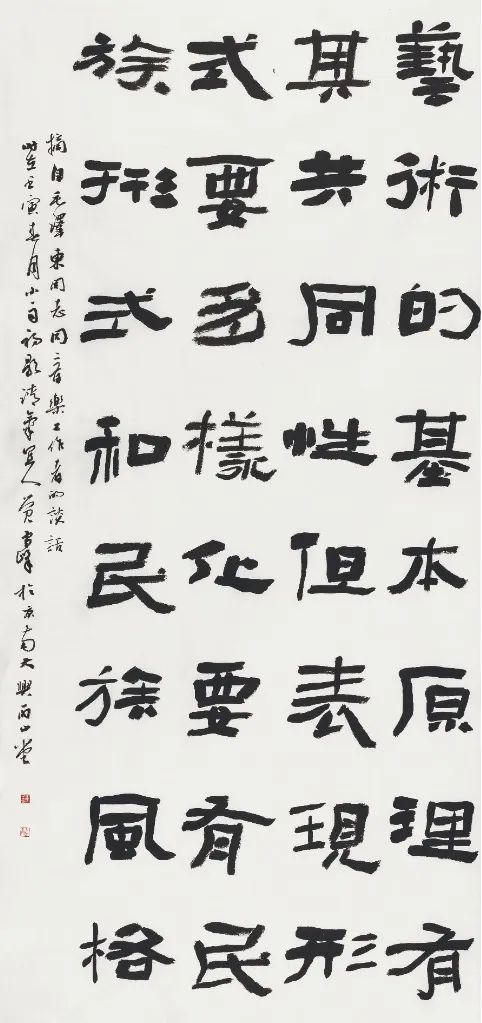 藝術的基本原理有
其共同性但表現形
式要多樣化要有民
族形式和民族風格
摘自毛澤東同志同音樂工作者的談話
歲在壬寅春月小日初影清氣宜人 於京南大興西山堂